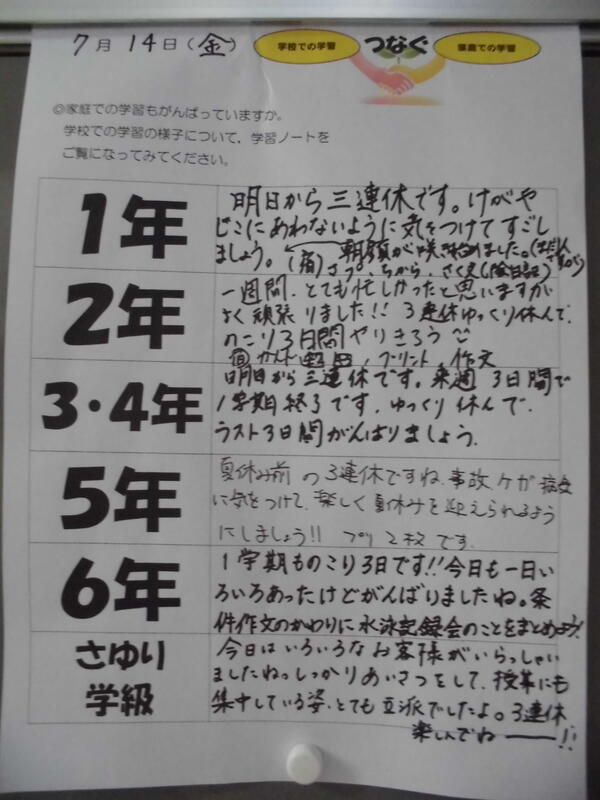 7月14日(金)
学校での学習 つなぐ 家庭での学習
◎家庭での学習もがんばっていますか。
学校での学習の様子について、学習ノートを
ご覧になってみてください。
1年
明日から三連休です。けがや
じこにあわないように気をつけてすごし
ましょう。朝顔が咲き始めました。
(宿)さつ、ちから、さく文
2年
一週間、とても忙しかったと思いますが
よく頑張りました!!3連休ゆっくり休んで、
のこり3日間やりきろう
宿 プリント、作文
3・4年
明日から三連休です。来週3日間で
1学期終了です。ゆっくり休んで、
ラスト3日間がんばりましょう。
5年
夏休み前の3連休ですね。事故、ケガ
に気をつけて、楽しく夏休みを迎えられるよう
にしましょう!!プリ2枚です。
6年
1学期ものこり3日です!!今日も一日い
ろいろあったけどがんばりましたね。条
件作文のかわりに水泳記録会のことをまとめよう!
さゆり
学級
今日はいろいろなお客様がいらっしゃい
ましたねっしっかりあいさつをして、授業にも
集中している姿、とても立派でしたよ。3連休
楽しんでねー!!